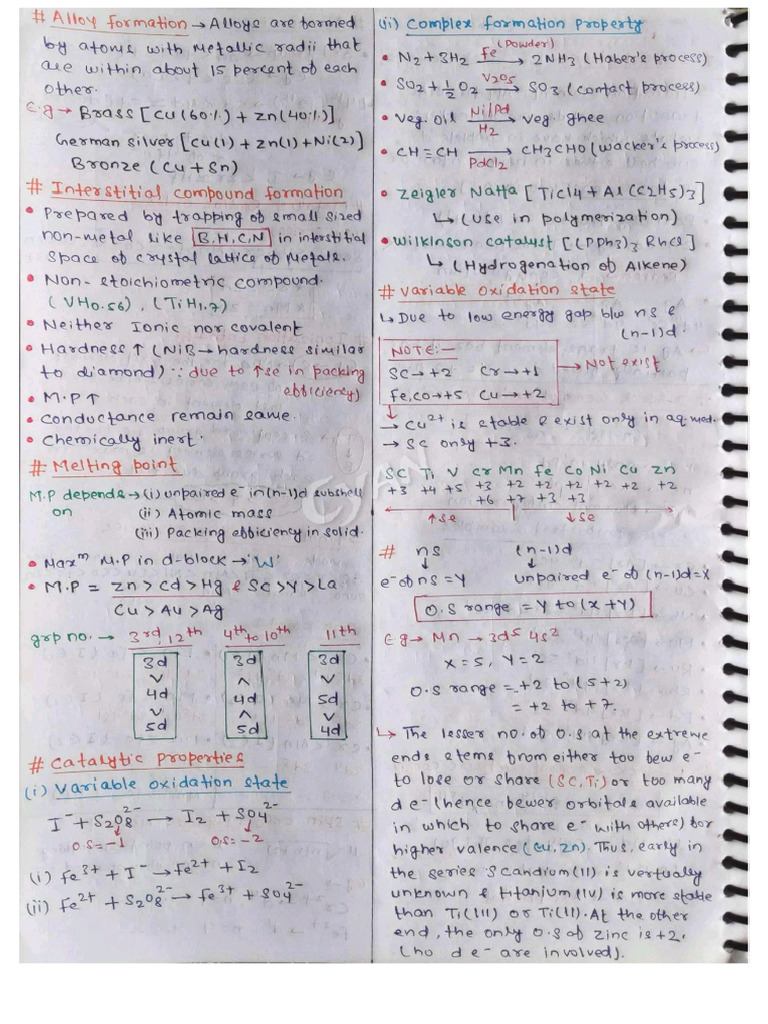 # Alloy formation → Alloys are formed
by atoms with Metallic radii that
are within about 15 percent of each
other.
E.g → Brass [Cu (60%) + Zn (40%)]
German silver [Cu(1) + Zn(1) + Ni(2)]
Bronze (Cu + Sn)
# Interstitial compound formation
• Prepared by trapping of small sized
non-metal like B,H,C,N in interstitial
space of crystal lattice of Metals.
• Non-stoichiometric compound.
(VH0.56), (TiH1.7)
• Neither Ionic nor covalent
• Hardness ↑ (NiB → hardness similar
to diamond) ∵ due to ↑se in packing
efficiency)
• M.P ↑
• Conductance remain same.
• Chemically inert.
# Melting point
M.P depends → (i) unpaired e⁻ in (n-1)d subshell
on (ii) Atomic mass
(iii) Packing efficiency in solid.
• Maxᵐ M.P in d-block → 'W'
• M.P = Zn > Cd > Hg & Sc > Y > La
Cu > Au > Ag
grp no. → 3rd, 12th 4th to 10th 11th
3d 3d 3d
∨ ∧ ∨
4d 4d 5d
∨ ∧ ∨
5d 5d 4d
# Catalytic properties
(i) Variable oxidation state
I⁻ + S2O8²⁻ → I2 + SO4²⁻
O.S = -1 O.S = -2
(i) Fe³⁺ + I⁻ → Fe²⁺ + I2
(ii) Fe²⁺ + S2O8²⁻ → Fe³⁺ + SO4²⁻
(ii) Complex formation property
• N2 + 3H2 Fe (Powder) → 2NH3 (Haber's process)
• SO2 + ½O2 V2O5 → SO3 (contact process)
• Veg. oil Ni/Pd H2 → veg. ghee
• CH≡CH PdCl2 → CH3CHO (Wacker's process)
• Zeigler Natta [TiCl4 + Al(C2H5)3]
↳ (Use in polymerization)
• Wilkinson catalyst [(PPh3)3 RhCl]
↳ (Hydrogenation of Alkene)
# Variable Oxidation state
↳ Due to low energy gap b/w ns &
(n-1)d.
NOTE:-
Sc → +2 Cr → +1 → Not exist
Fe, Co → +5 Cu → +2
→ Cu²⁺ is stable & exist only in aq med.
→ Sc only +3.
SC Ti V Cr Mn Fe Co Ni Cu Zn
+3 +4 +5 +3 +2 +2 +2 +2 +2 +2
+6 +7 +3 +3
↑se ↓se
# ns (n-1)d
↓ ↓
e⁻ of ns = Y unpaired e⁻ of (n-1)d = X
O.S range = Y to (X+Y)
E.g → Mn → 3d⁵ 4s²
X = 5, Y = 2
O.S range = +2 to (5+2)
= +2 to +7.
↳ The lesser no. of O.S at the extreme
ends stems from either too few e⁻
to lose or share (SC, Ti) or too many
d e⁻ (hence fewer orbitals available
in which to share e⁻ with others) for
higher valence (Cu, Zn). Thus, early in
the series Scandium (II) is vertually
unknown & titanium (IV) is more stable
than Ti(III) or Ti(II). At the other
end, the only O.S of zinc is +2.
(no d e⁻ are involved).